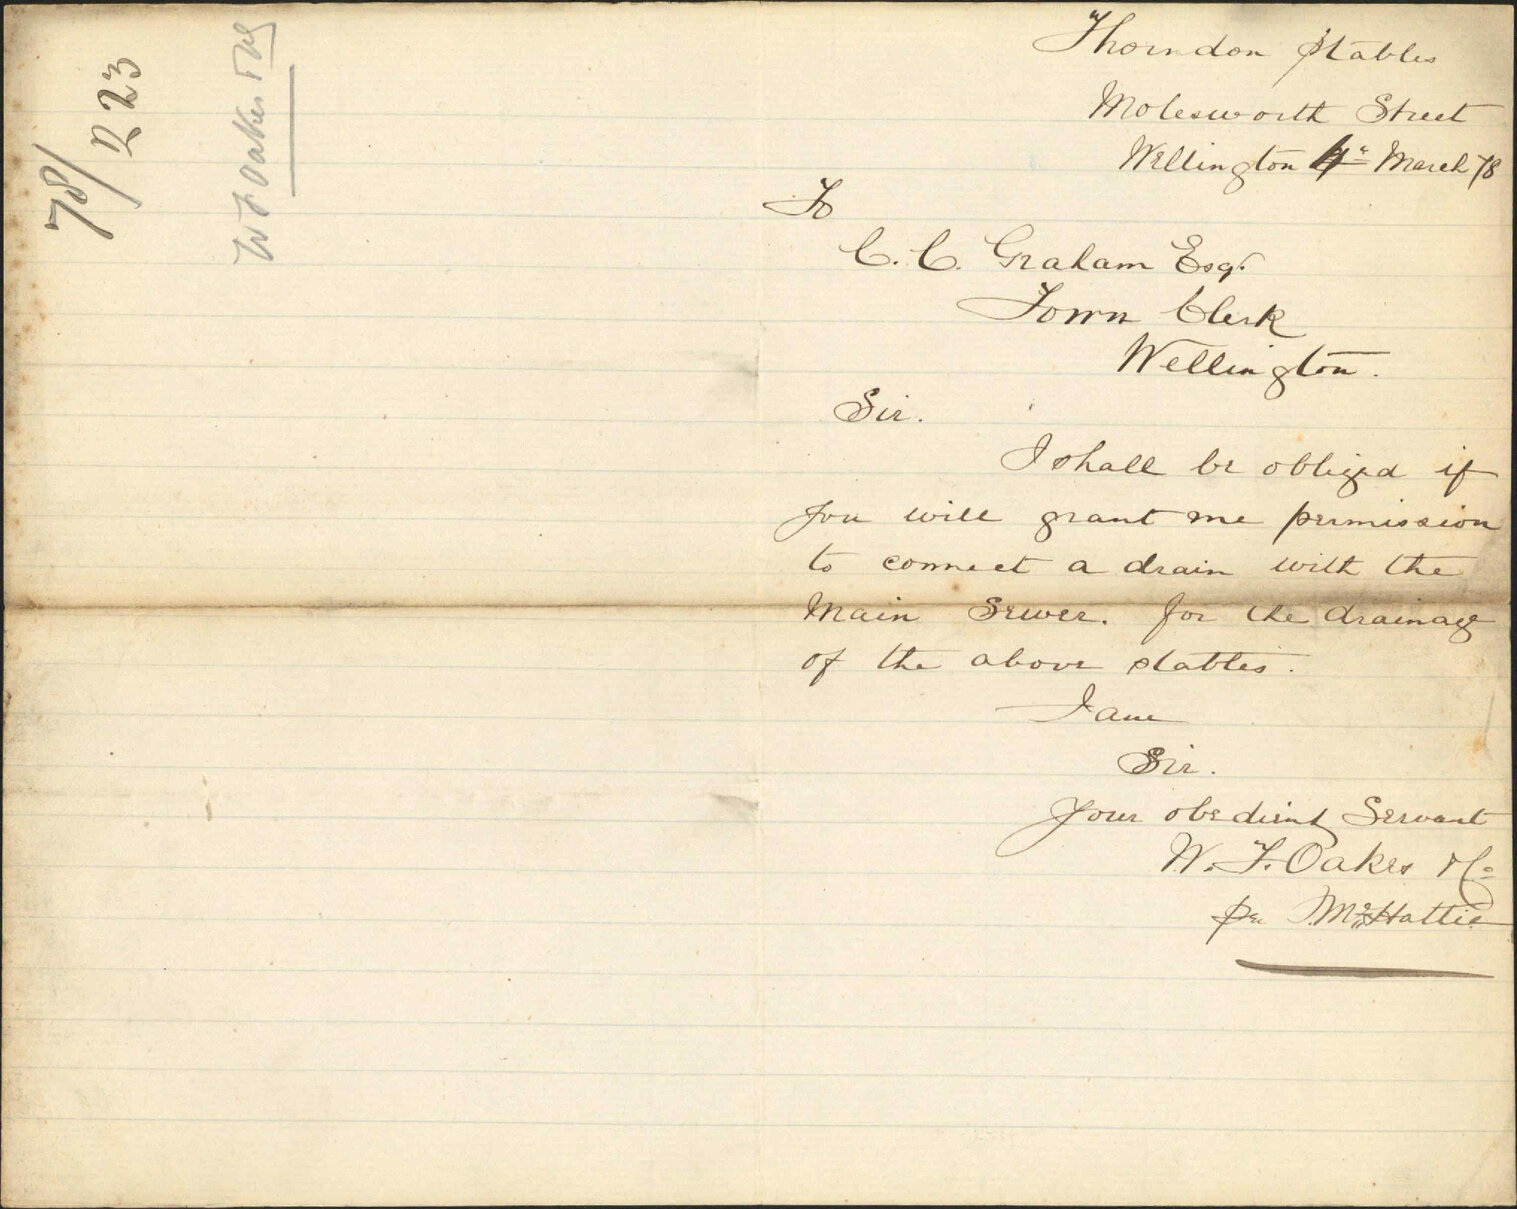 Thorndon Stables
Molesworth Street
Wellington 4th March 78
To
C. C. Graham Esqr.
Town Clerk
Wellington.
Sir.
I shall be obliged if
you will grant me permission
to connect a drain with the
Main Sewer. for the drainage
of the above stables.
I am
Sir.
Your obedient Servant
W. F. Oakes & Co
per McHattie
78/
223
W F Oakes &